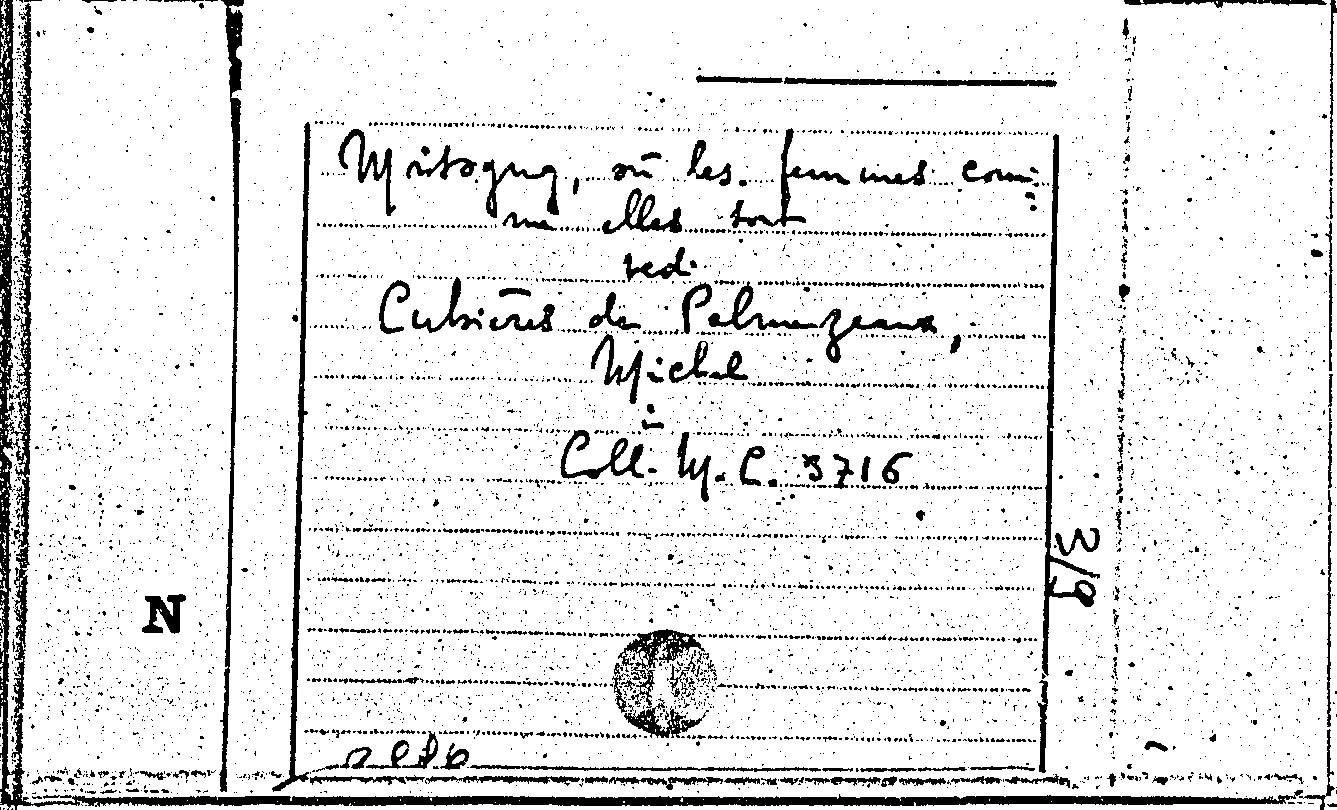 Misogug, où les femmes com-
me elles sont
red.
Cubières de Palmezeaux,
Michel
:
Coll. M. C. 3716
3/9
N